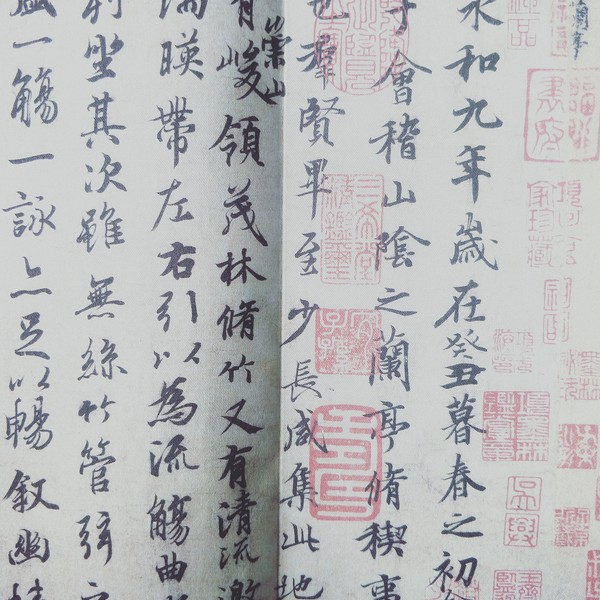 永和九年歲在癸丑暮春之初
于會稽山陰之蘭亭脩稧事
也群賢畢至少長咸集此地
有崇山峻領茂林脩竹又有清流激
湍暎帶左右引以為流觴曲
列坐其次雖無絲竹管弦之
盛一觴一詠亦足以暢敘幽情
項子京家珍藏
吳興
三希堂精鑑璽
宜子孫